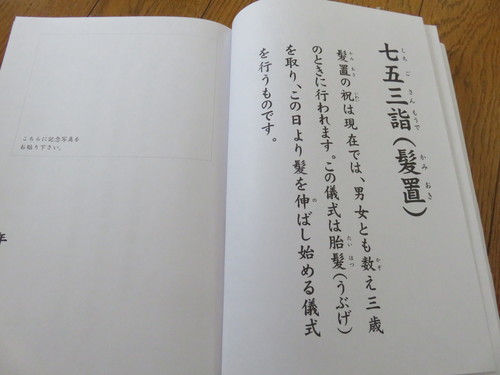 七五三詣(髪置)
髪置の祝は現在では、男女とも数え三歳
のときに行われます。この儀式は胎髪(うぶげ)
を取り、この日より髪を伸ばし始める儀式
を行うものです。
こちらに記念写真を
お貼り下さい。